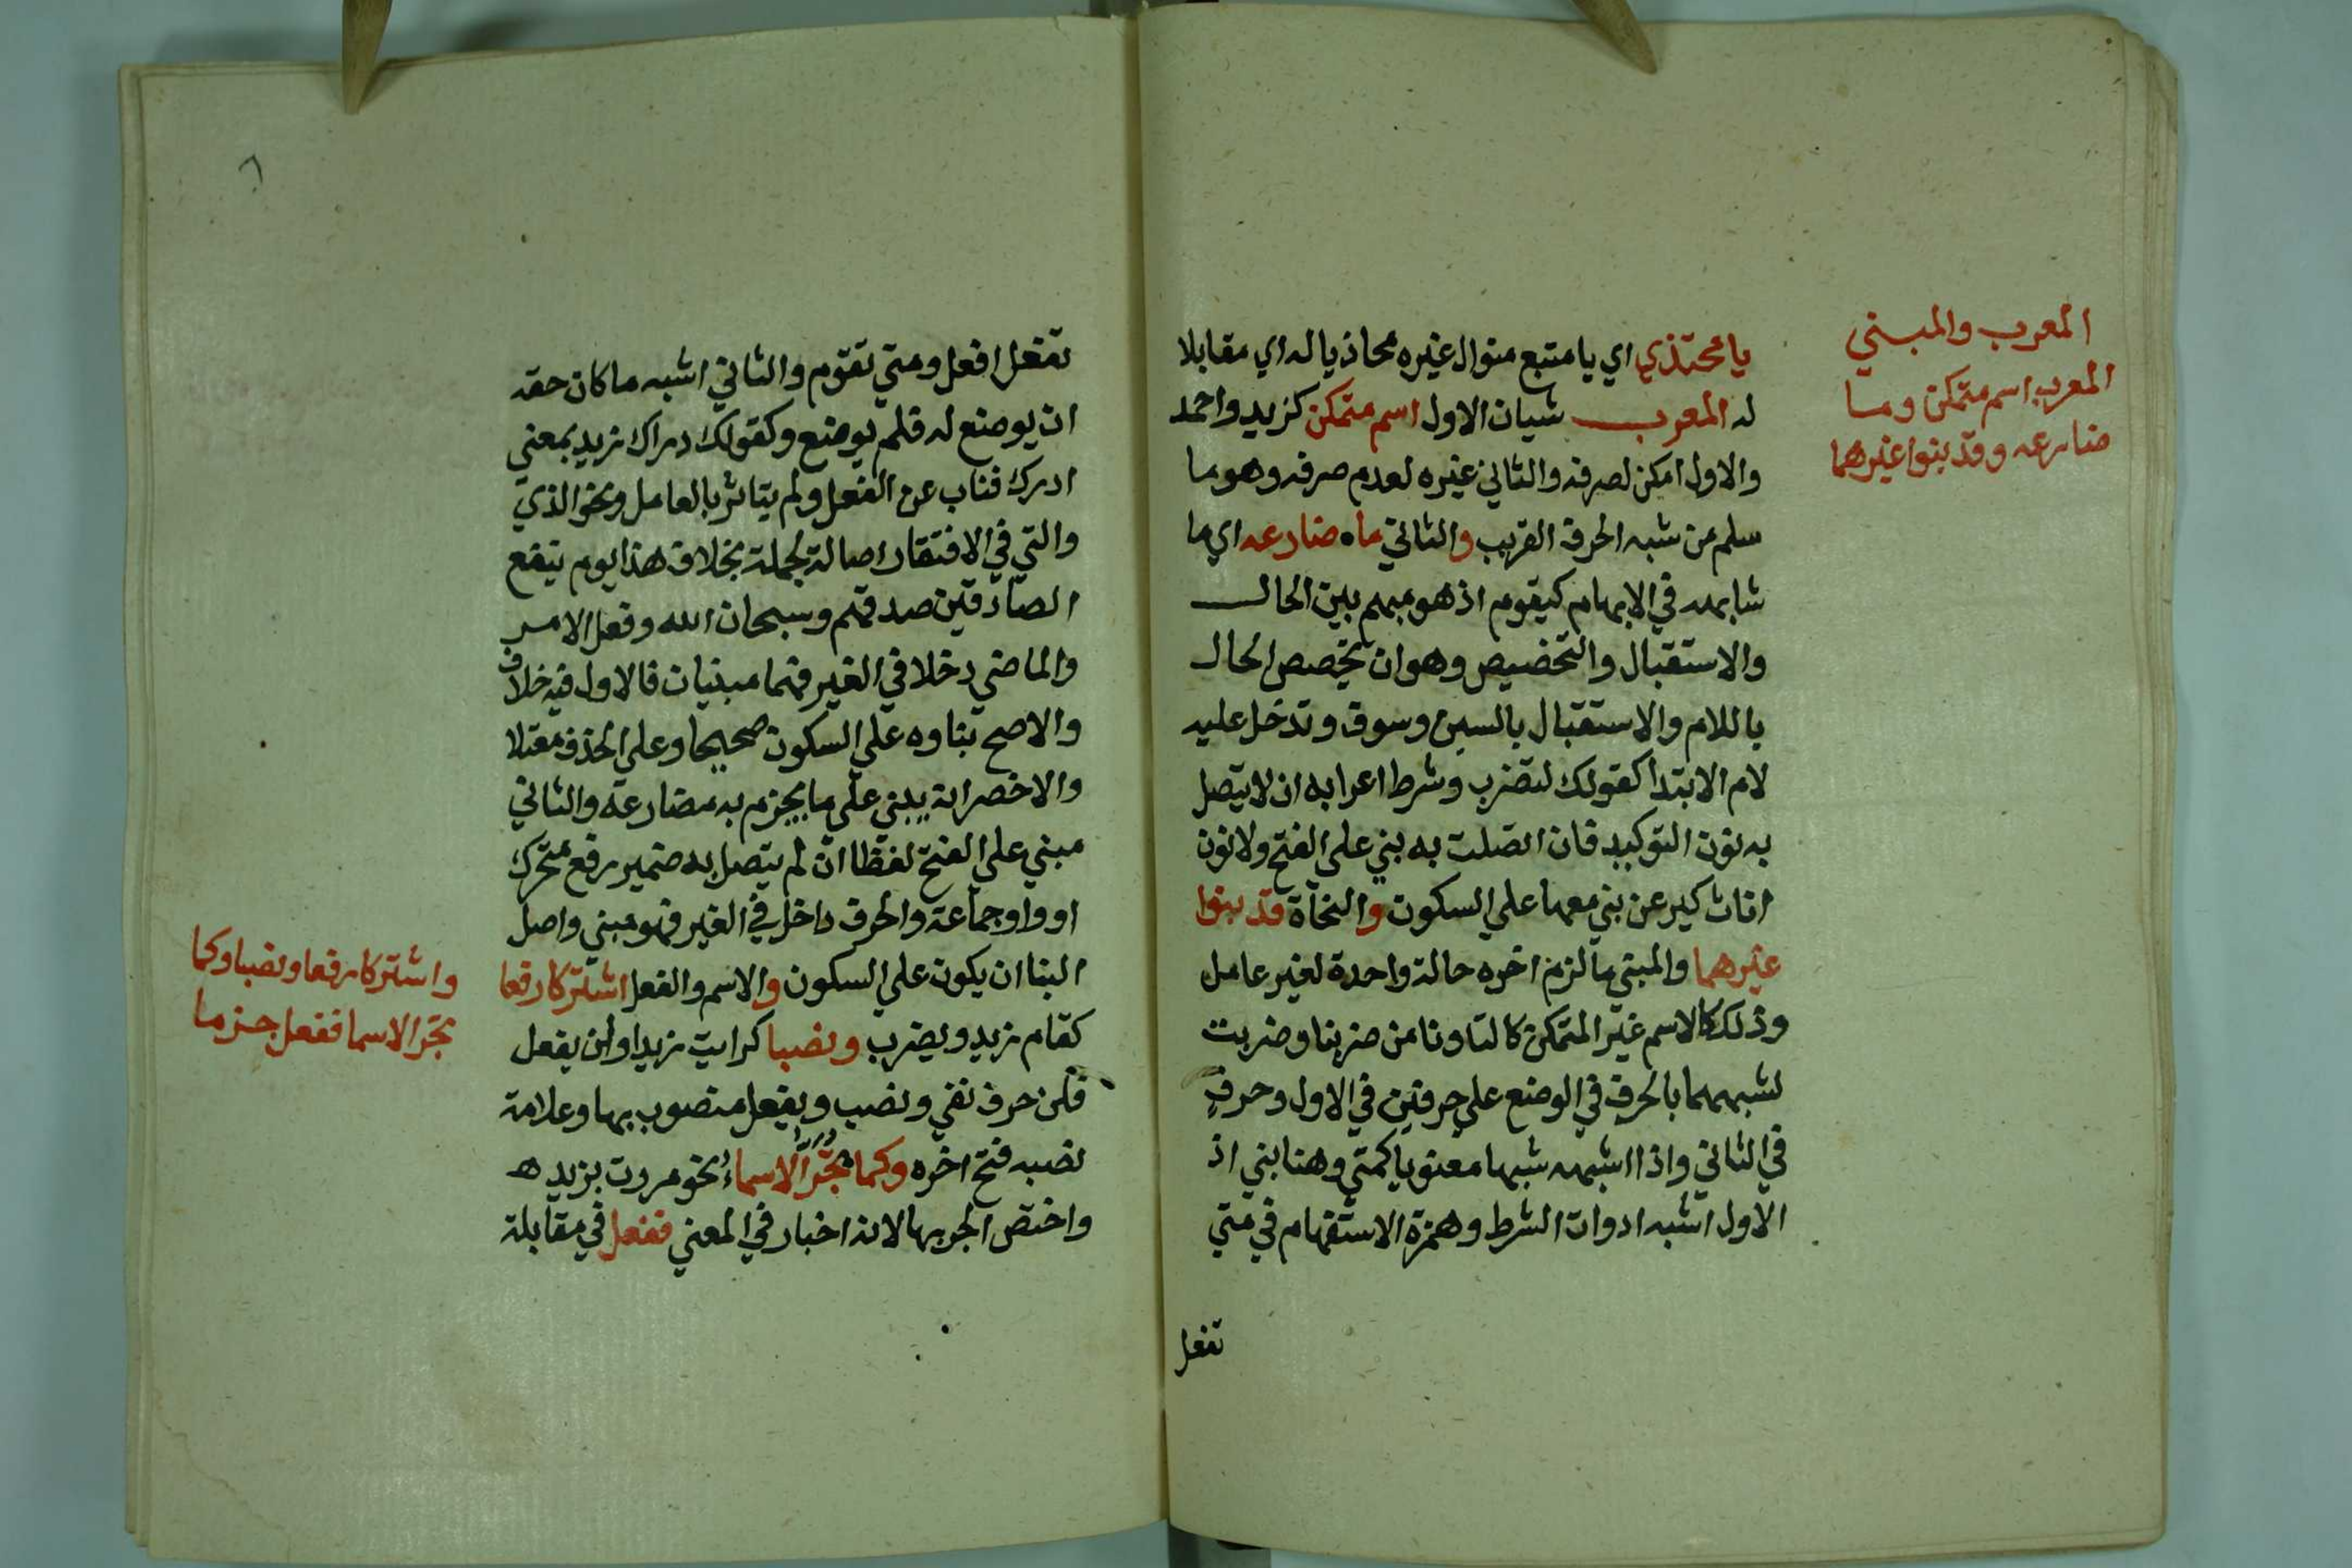 المعرب والمبني
المعرب اسم متمكن وما
ضارعه وقد بنوا غيرهما
يا محتذي اي يا متبع منوال غيره محاذيا له اي مقابلا
له المعرب شيان الاول اسم متمكن كزيد واحمد
والاول امكن لصرفه والثاني غيره لعدم صرفه وهو ما
سلم من شبه الحرف القريب والثاني ما ضارعه اي ما
شابهه في الابهام كيقوم اذ هو مبهم بين الحال
والاستقبال والتخصيص وهو ان تخصص الحال
باللام والاستقبال بالسين وسوف وتدخل عليه
لام الابتدا كقولك لتضرب وشرط اعرابه ان لا يتصل
به نون التوكيد فان اتصلت به بني على الفتح ولا نون
اناث كيرعن بني معها على السكون والنحاة قد بنوا
غيرهما والمبني ما لزم اخره حالة واحدة لغير عامل
وذلك كالاسم غير المتمكن كالتا ونا من ضربنا وضربت
لشبههما بالحرف في الوضع على حرفين في الاول وحرف
في الثاني واذا اشبهه شبها معنويا كمتى وهنا بني اذ
الاول اشبه ادوات الشرط وهمزة الاستفهام في متي
تفعل
٦
تفعل افعل ومتي تقوم والثاني اشبه ما كان حقه
ان يوضع له فلم يوضع وكقولك دراك زيد بمعني
ادرك فناب عن الفعل ولم يتاثر بالعامل ونحو الذي
والتي في الافتقار اصالة لجملة بخلاف هذا يوم ينفع
الصادقين صدقهم وسبحان الله وفعل الامر
والماضي دخلا في الغير فهما مبنيان فالاول فيه خلاف
والاصح بناوه علي السكون صحيحا وعلي الحذف معتلا
والاخصر انه يبني على ما يجزم به مضارعه والثاني
مبني على الفتح لفظا ان لم يتصل به ضمير رفع متحرك
او واو جماعة والحرف داخل في الغير فهو مبني واصل
البنا ان يكون علي السكون والاسم والفعل اشتركا رفعا
كقام زيد ويضرب ونصبا كرايت زيدا ولن يفعل
فلن حرف نفي ونصب ويفعل منصوب بها وعلامة
نصبه فتح اخره وكما تجر الاسماء نحو مررت بزيد
واختص الجر بها لانه اخبار في المعني ففعل في مقابلة
واشتركا رفعا ونصبا وكما
تجر الاسما ففعل جزما